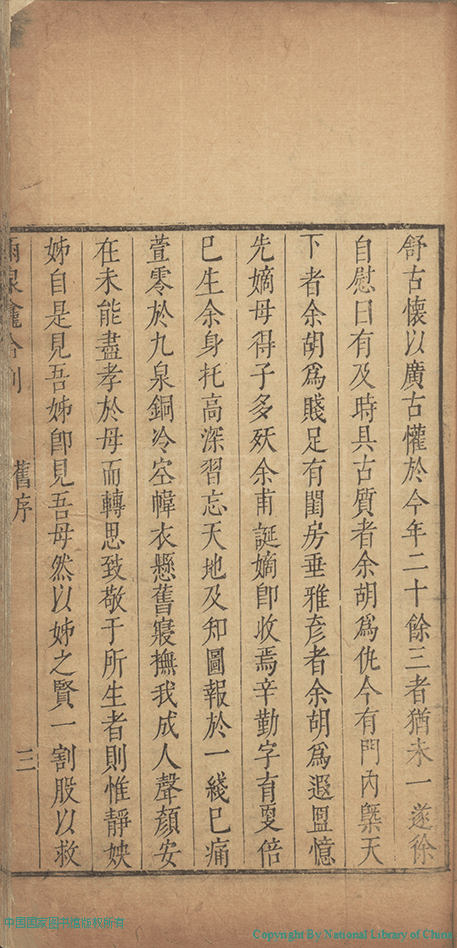 舒古懷以廣古懽於今年二十餘三者猶未一遂徐
自慰曰有及時具古質者余胡爲仇今有門內槩天
下者余胡爲賤足有閨房垂雅彦者余胡爲遐凰憶
先嫡母得子多殀余甫誕嫡卽收焉辛勤字育更倍
已生余身托高深習忘天地及知圖報於一綫已痛
萱零於九泉銅冷空幃衣懸舊寢撫我成人聲顏安
在未能盡孝於母而轉思致敬于所生者則惟靜姎
姊自是見吾姊卽見吾母然以姊之賢一割股以救
合刻
舊序
三
中国国家图书馆版权所有
Copyright By National Library of China